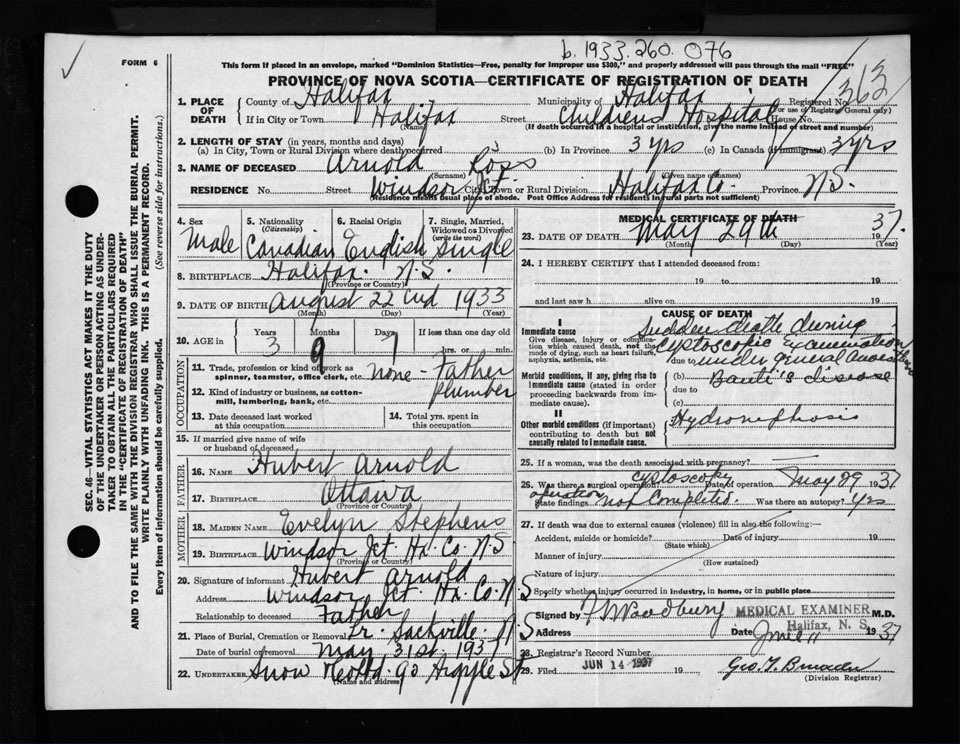 b. 1933.260.076
FORM 6
This form if placed in an envelope, marked "Dominion Statistics—Free, penalty for improper use $300," and properly addressed will pass through the mail "FREE"
PROVINCE OF NOVA SCOTIA—CERTIFICATE OF REGISTRATION OF DEATH
363
SEC. 46—VITAL STATISTICS ACT MAKES IT THE DUTY
OF THE UNDERTAKER OR PERSON ACTING AS UNDER-
TAKER TO OBTAIN ALL THE PARTICULARS REQUIRED
IN THE "CERTIFICATE OF REGISTRATION OF DEATH"
AND TO FILE THE SAME WITH THE DIVISION REGISTRAR WHO SHALL ISSUE THE BURIAL PERMIT.
WRITE PLAINLY WITH UNFADING INK. THIS IS A PERMANENT RECORD.
Every item of information should be carefully supplied. (See reverse side for instructions.)
1. PLACE OF DEATH County of Halifax Municipality of Halifax Registered No.
(For use of Registrar General only)
If in City or Town Halifax Street Childrens Hospital House No.
(Name) (If death occurred in a hospital or institution, give the name instead of street and number)
2. LENGTH OF STAY (in years, months and days)
(a) In City, Town or Rural Division where death occurred (b) In Province 3 yrs (c) In Canada (if immigrant) 3 yrs
3. NAME OF DECEASED Arnold Ross
(Surname) (Given name or names)
RESIDENCE No. Street Windsor Jct. City, Town or Rural Division Halifax Co. Province N.S.
(Residence means usual place of abode. Post Office Address for residents in rural parts not sufficient)
4. Sex Male
5. Nationality (Citizenship) Canadian
6. Racial Origin English
7. Single, Married, Widowed or Divorced (write the word) Single
8. BIRTHPLACE Halifax. N.S.
(Province or Country)
9. DATE OF BIRTH August 22nd 1933
(Month) (Day) (Year)
10. AGE in Years 3 Months 9 Days 7 If less than one day old hrs. or min.
OCCUPATION
11. Trade, profession or kind of work as spinner, teamster, office clerk, etc. none - Father
12. Kind of industry or business, as cotton-mill, lumbering, bank, etc. plumber
13. Date deceased last worked at this occupation
14. Total yrs. spent in this occupation
15. If married give name of wife or husband of deceased
FATHER
16. NAME Hubert Arnold
17. BIRTHPLACE Ottawa
(Province or Country)
MOTHER
18. MAIDEN NAME Evelyn Stephens
19. BIRTHPLACE Windsor Jct. Hx. Co. N.S
(Province or Country)
20. Signature of informant Hubert Arnold
Address Windsor Jct. Hx. Co. N S
Relationship to deceased Father
21. Place of Burial, Cremation or Removal Lr. Sackville. N S
Date of burial or removal May 31st. 1937
22. UNDERTAKER Snow & Co Ltd. 90 Argyle St
(Name and address)
MEDICAL CERTIFICATE OF DEATH
23. DATE OF DEATH May 29th 1937.
(Month) (Day) (Year)
24. I HEREBY CERTIFY that I attended deceased from:
19 to 19
and last saw h alive on 19
CAUSE OF DEATH
I
Immediate cause
Give disease, injury or complication which caused death, not the mode of dying, such as heart failure, asphyxia, asthenia, etc.
Sudden death during
Cystoscopic examination
due to under general anaesthesia
Morbid conditions, if any, giving rise to immediate cause (stated in order proceeding backwards from immediate cause).
(b) Banti's disease
due to
(c)
II
Other morbid conditions (if important) contributing to death but not causally related to immediate cause.
Hydronephosis
25. If a woman, was the death associated with pregnancy?
26. Was there a surgical operation? cystoscopy Date of operation May 29 1937
State findings operation not Completed. Was there an autopsy? Yes
27. If death was due to external causes (violence) fill in also the following:—
Accident, suicide or homicide? Date of injury 19
(State which)
Manner of injury
(How sustained)
Nature of injury
Specify whether injury occurred in industry, in home, or in public place
Signed by Woodbury MEDICAL EXAMINER M.D.
Halifax, N. S.
Address Date June 11 1937
28. Registrar's Record Number
29. Filed JUN 14 1937 19
(Division Registrar)